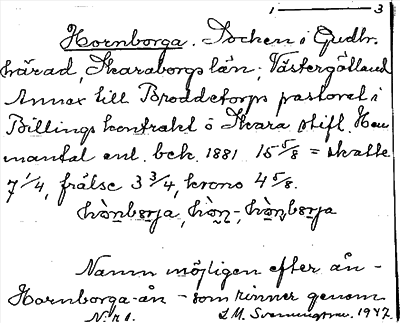 1 ——— 3
Hornborga. Socken i Gudhr.
härad, Skaraborgs län; Västergötland
Annex till Broddetorps pastorat i
Billings kontrakt o Skara stift. Hem
mantal enl. bek. 1881 15 5/8 = skatte
7 1/4, frälse 3 3/4, krono 4 5/8.
Namn möjligen efter ån -
Hornborga-ån - som rinner genom
N:r 1. S.M. 1947.